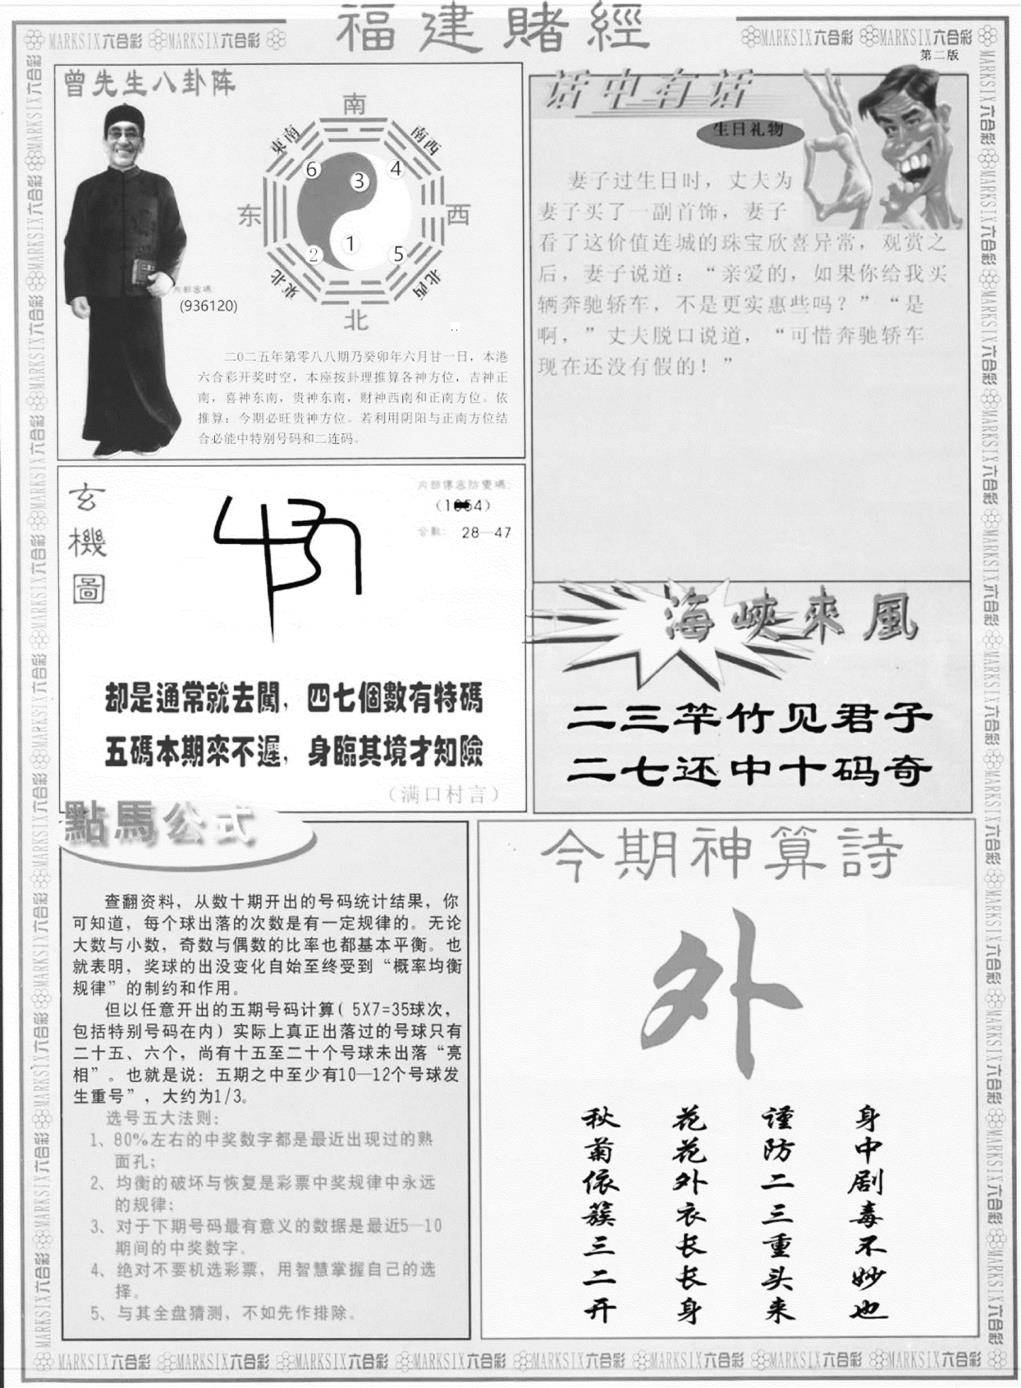 福建賭經
MARKSIX六合彩 MARKSIX六合彩
MARKSIX六合彩 MARKSIX六合彩
第二版
曾先生八卦阵
南
東南
南西
6
3
4
东
西
2
1
5
東北
北西
北
(936120)
二〇二五年第零八八期乃癸卯年六月廿一日，本港
六合彩开奖时空，本座按卦理推算各神方位，吉神正
南，喜神东南，贵神东南，财神西南和正南方位。依
推算：今期必旺贵神方位。若利用阴阳与正南方位结
合必能中特别号码和二连码。
话中有话
生日礼物
妻子过生日时，丈夫为
妻子买了一副首饰，妻子
看了这价值连城的珠宝欣喜异常，观赏之
后，妻子说道：“亲爱的，如果你给我买
辆奔驰轿车，不是更实惠些吗？”“是
啊，”丈夫脱口说道，“可惜奔驰轿车
现在还没有假的！”
玄機圖
28—47
却是通常就去闖，四七個數有特碼
五碼本期來不遲，身臨其境才知險
（满口村言）
海峽來風
二三竿竹见君子
二七还中十码奇
點馬公式
查翻资料，从数十期开出的号码统计结果，你
可知道，每个球出落的次数是有一定规律的。无论
大数与小数，奇数与偶数的比率也都基本平衡。也
就表明，奖球的出没变化自始至终受到“概率均衡
规律”的制约和作用。
但以任意开出的五期号码计算( 5X7=35球次，
包括特别号码在内) 实际上真正出落过的号球只有
二十五、六个，尚有十五至二十个号球未出落“亮
相”。也就是说：五期之中至少有10—12个号球发
生重号”，大约为1/3。
选号五大法则：
1、80%左右的中奖数字都是最近出现过的熟
面孔；
2、均衡的破坏与恢复是彩票中奖规律中永远
的规律；
3、对于下期号码最有意义的数据是最近5—10
期间的中奖数字。
4、绝对不要机选彩票，用智慧掌握自己的选
择。
5、与其全盘猜测，不如先作排除。
今期神算詩
外
身中剧毒不妙也
谨防二三重头来
花花外衣长长身
秋菊依簇三二开
MARKSIX六合彩 MARKSIX六合彩 MARKSIX六合彩 MARKSIX六合彩 MARKSIX六合彩 MARKSIX六合彩 MARKSIX六合彩 MARKSIX六合彩